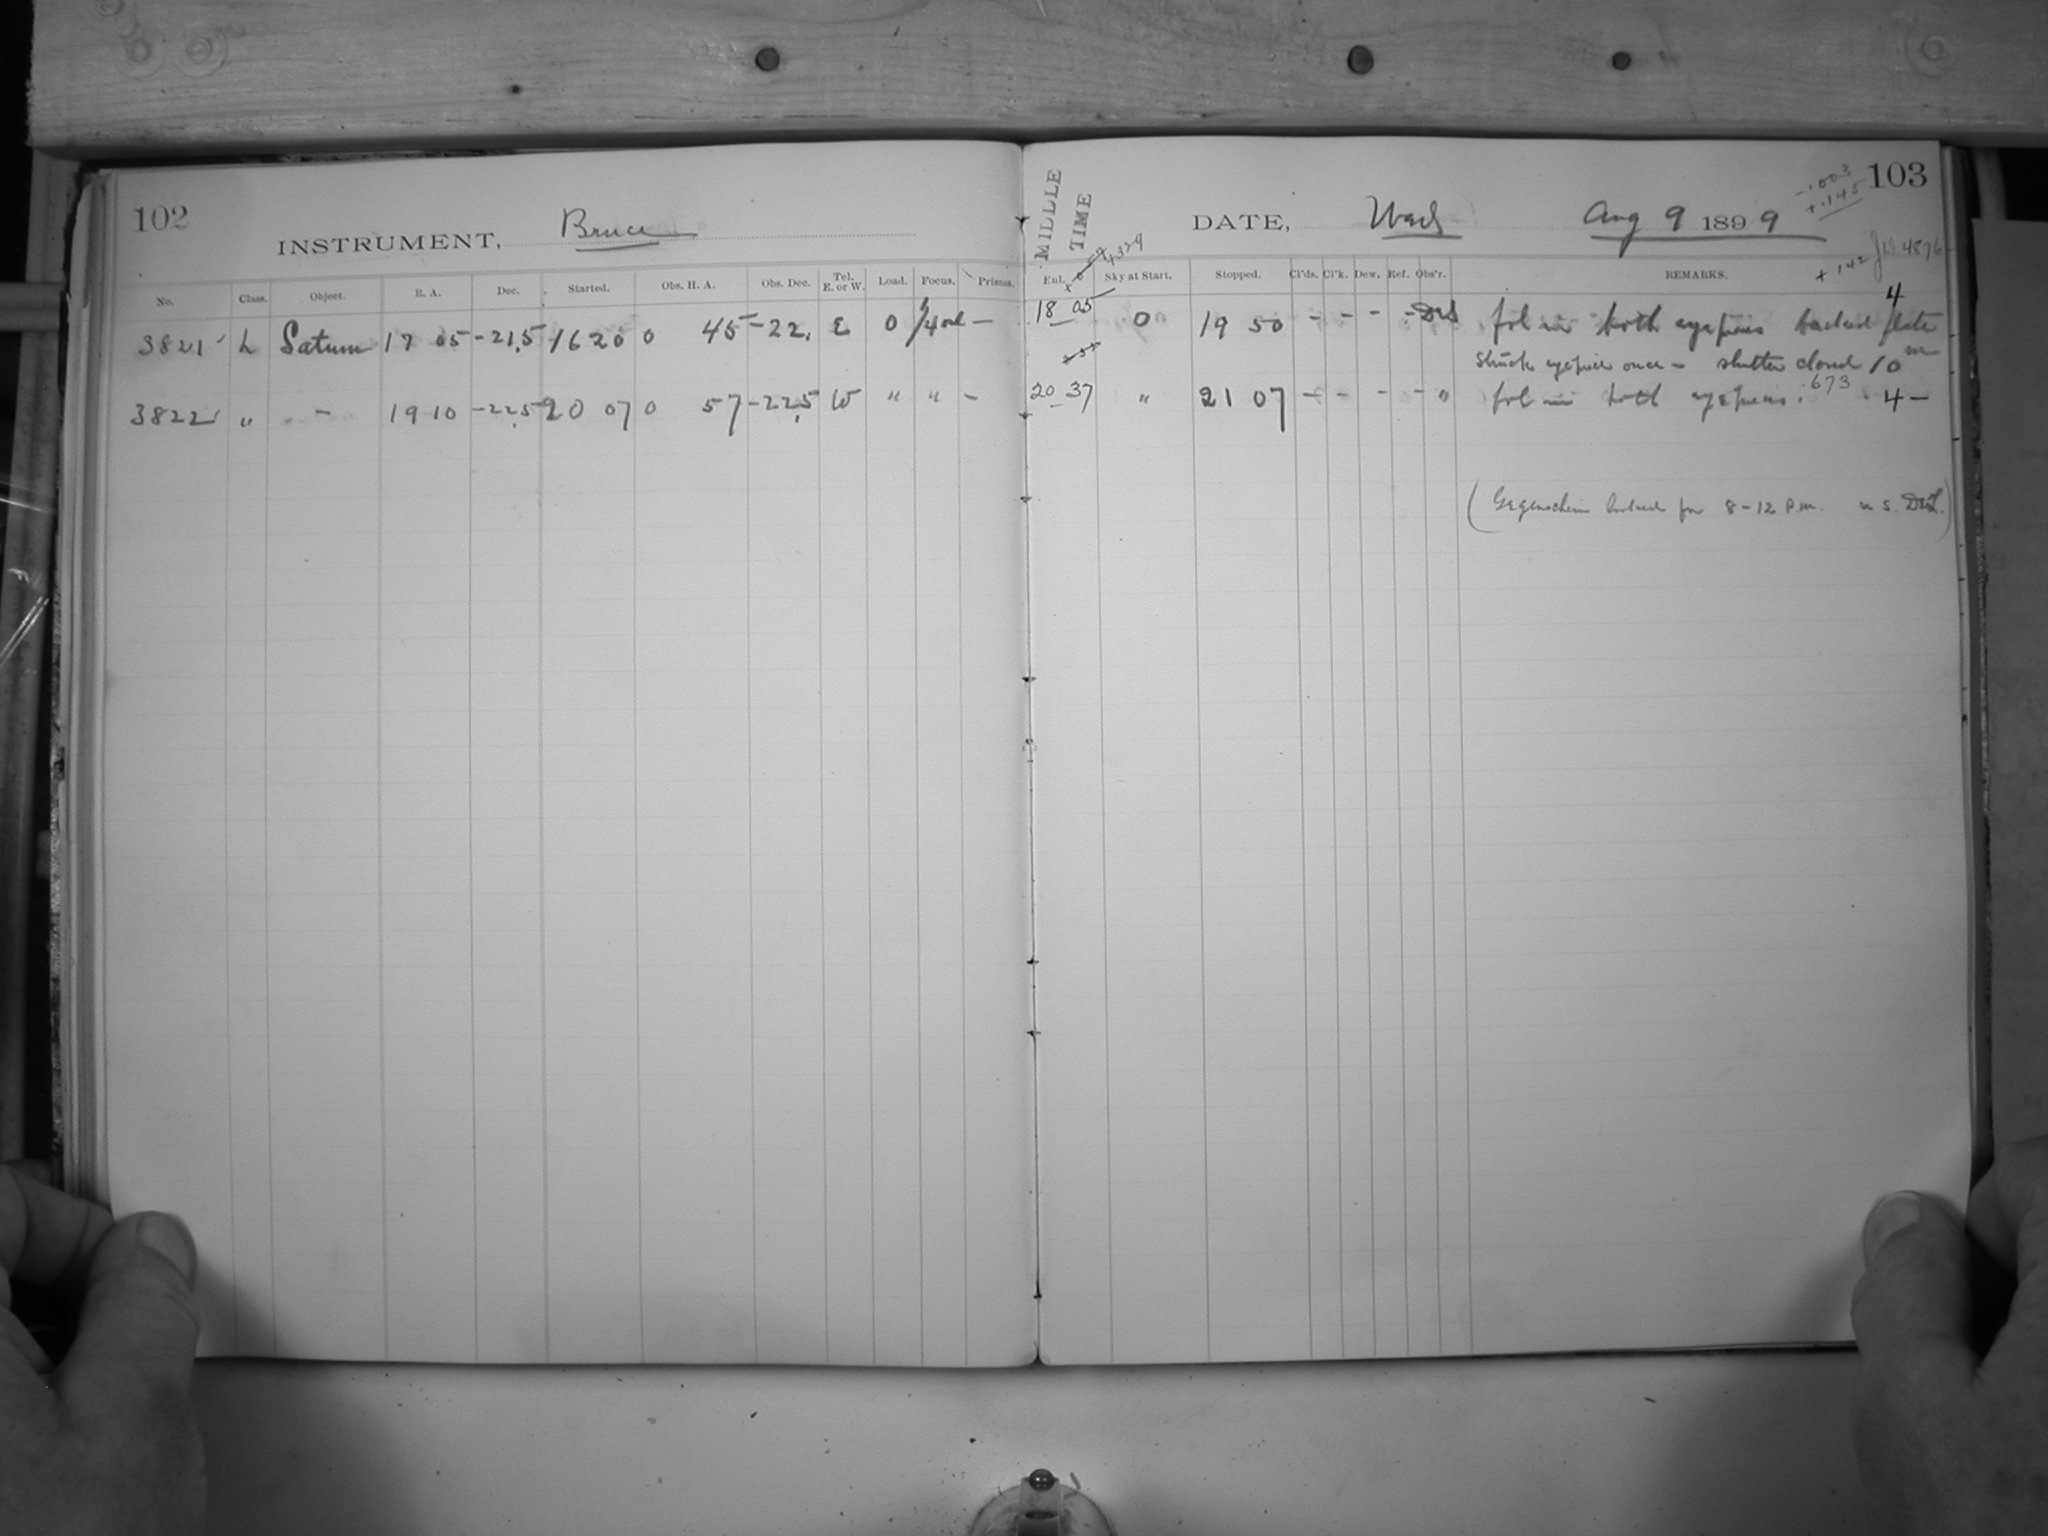 102
INSTRUMENT, Bruce
No. Class. Object. R. A. Dec. Started. Obs. H. A. Obs. Dec. Tel. E. or W. Load. Focus. Prisms.
3821 L Saturn 17 05 -21.5 16 20 0 45 -22. E 0 —
3822 " - 19 10 -22.5 20 07 0 57 -22.5 W " " -
103
-.003
+.145
MIDDLE TIME
DATE, Wed Aug 9 1899
+142 J.D. 4876
Exl. Sky at Start. Stopped. Cl'ds. Cl'k. Dew. Ref. Obs'r. REMARKS.
4
18 05 0 19 50 - - - - fol in both eyepieces backed plate
struck eyepiece once – shutter closed 10 m
20 37 " 21 07 - - - - " fol in both eyepieces. .673 4 –
(Gegenschein looked for 8-12 P.M.